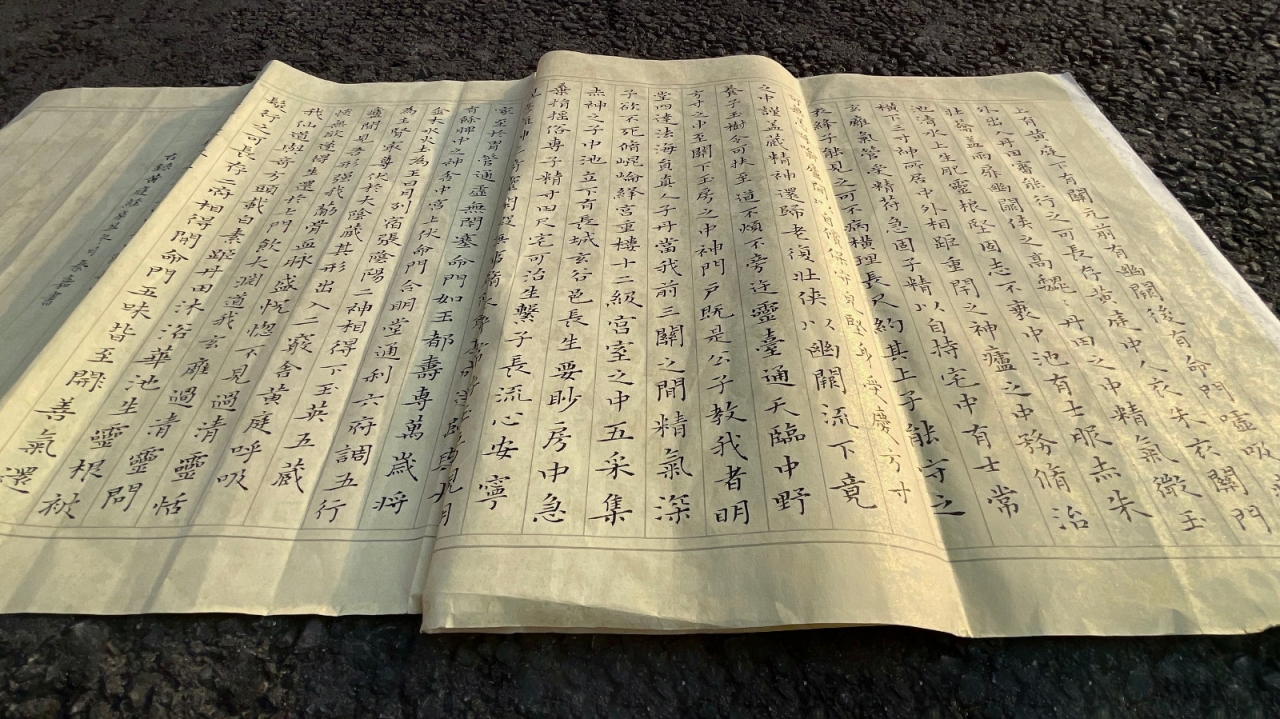 上有黃庭下有關元前有幽關後有命門噓吸
出入丹田審能行之可長存黃庭中人衣朱衣關門
壯籥蓋兩扉幽闕俠之高巍 丹田之中精氣微玉
池清水上生肥靈根堅固志不衰中池有士服赤朱
橫下三寸神所居中外相距重閉之神廬之中務脩治
玄膺氣管受精符急固子精以自持宅中有士常
衣絳子能見之可不病橫理長尺約其上子能守之
以自償保守完堅身受慶方寸
之中謹蓋藏精神還歸老復壯俠以幽闕流下竟
養子玉樹令可扶至道不煩不旁迕靈臺通天臨中野
方寸之中至關下玉房之中神門戶既是公子教我者明
堂四達法海員真人子丹當我前三關之間精氣深
子欲不死脩崐崘絳宮重樓十二級宮室之中五采集
赤神之子中池立下有長城玄谷邑長生要眇房中急
棄捐搖俗專子精寸田尺宅可治生繫子長流心安寧
家至於胃管通虛無閉塞命門如玉都壽專萬歲將
有餘脾中之神舍中宮上伏命門合明堂通利六府調五行
金木水火土為王日月列宿張陰陽二神相得下玉英五藏
為主腎最尊伏於大陰藏其形出入二竅舍黃庭呼吸
廬間見吾形強我筋骨血脈盛恍惚不見過清靈恬
惔無欲遂得生還於七門飲大淵道我玄膺過清靈問
我仙道與奇方頭載白素距丹田沐浴華池生靈根被
髮行之可長存二府相得開命門五味皆至開善氣還